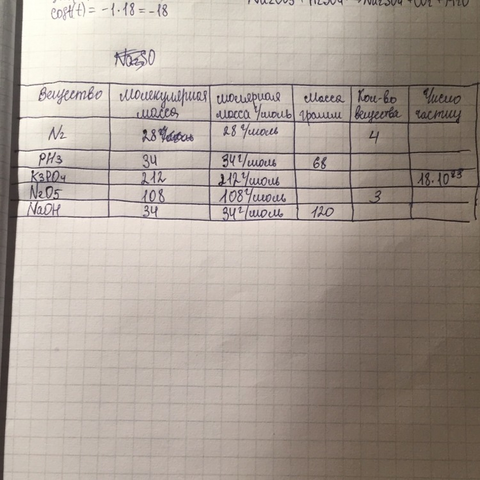 cost(t) = -1·18 = -18
Na2CO3 + H2SO4 → Na2SO4 + CO2 + H2O
Na2SO
Вещество Молекулярная масса молярная масса г/моль Масса грамм Кол-во вещесова Число частиц
N2 28 28 г/моль 4
PH3 34 34 г/моль 68
K3PO4 212 212 г/моль 18·10²³
N2O5 108 108 г/моль 3
NaOH 34 34 г/моль 120